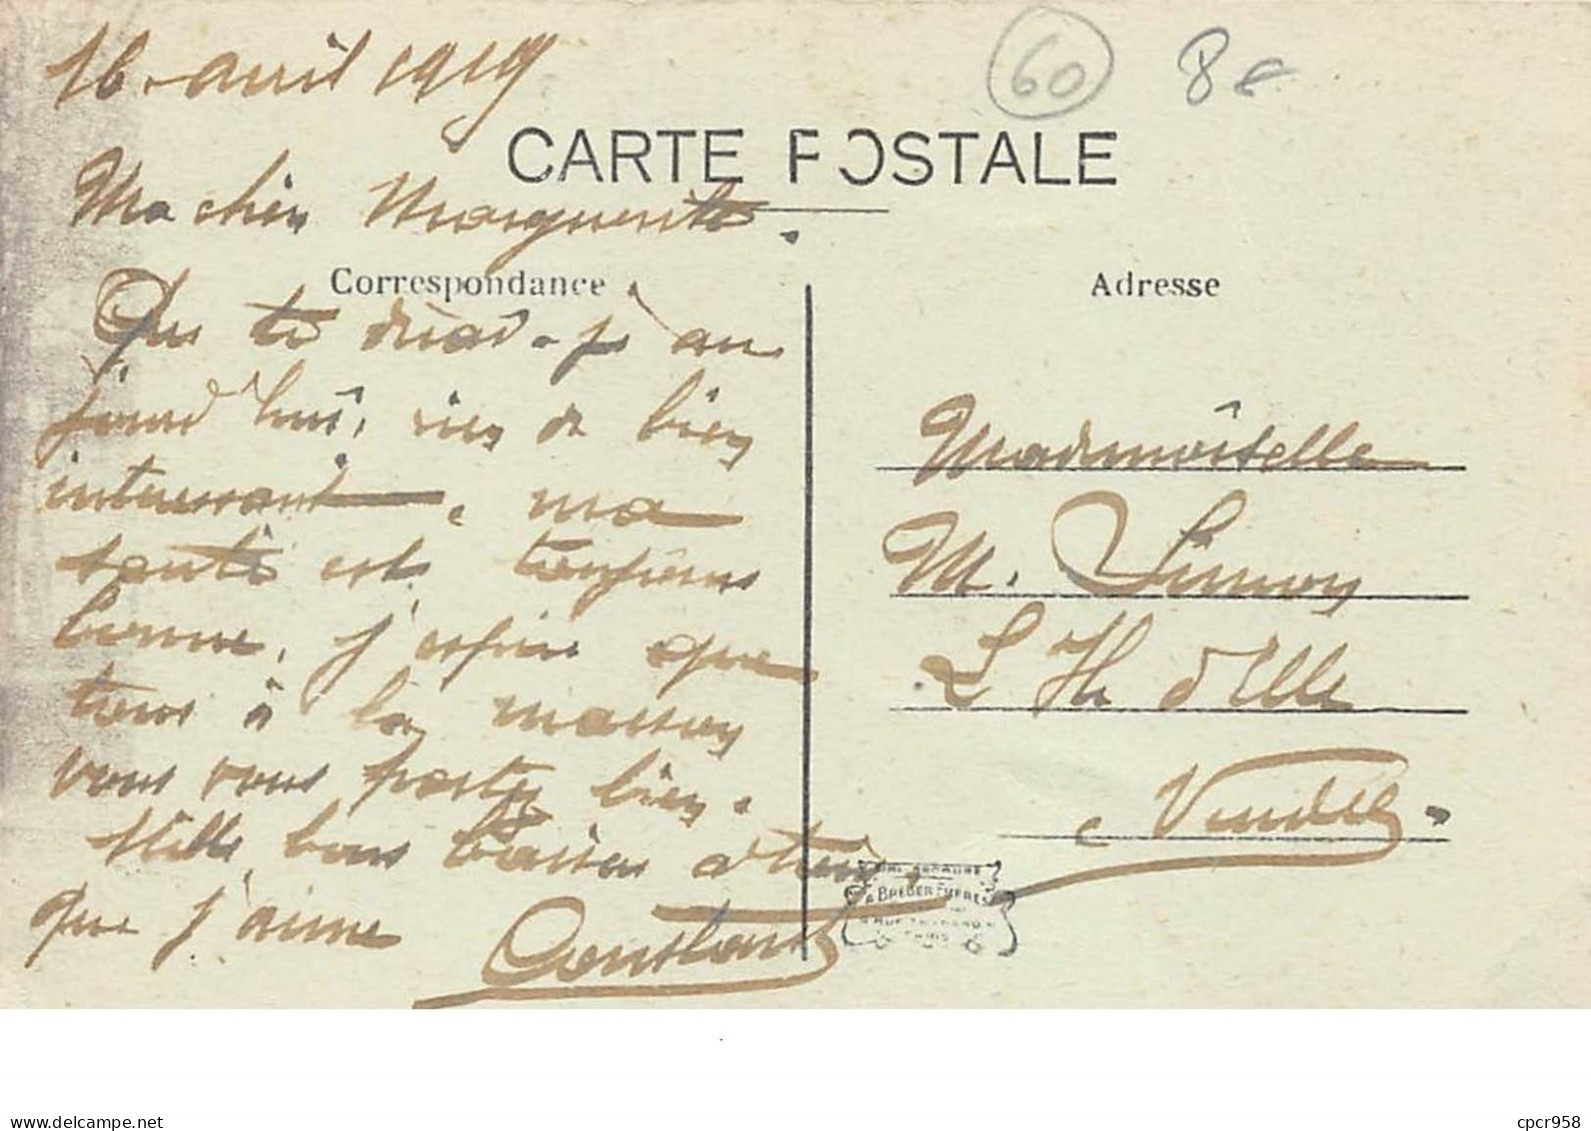 16 avril 1919
60
8 €
CARTE POSTALE
Ma chère Marguerite.
Correspondance
Adresse
Que te dirai-je au
jourd'hui, rien de bien
intéressant, ma
santé est toujours
bonne, j'espère que
tous à la maison
vous vous portez bien.
Mille bons baisers à toi
que j'aime
Constant
Mademoiselle
M. Simon
L'H d'Elle
Vendée
BREGER FRÈRES
PARIS
delcampe.net
cpcr958